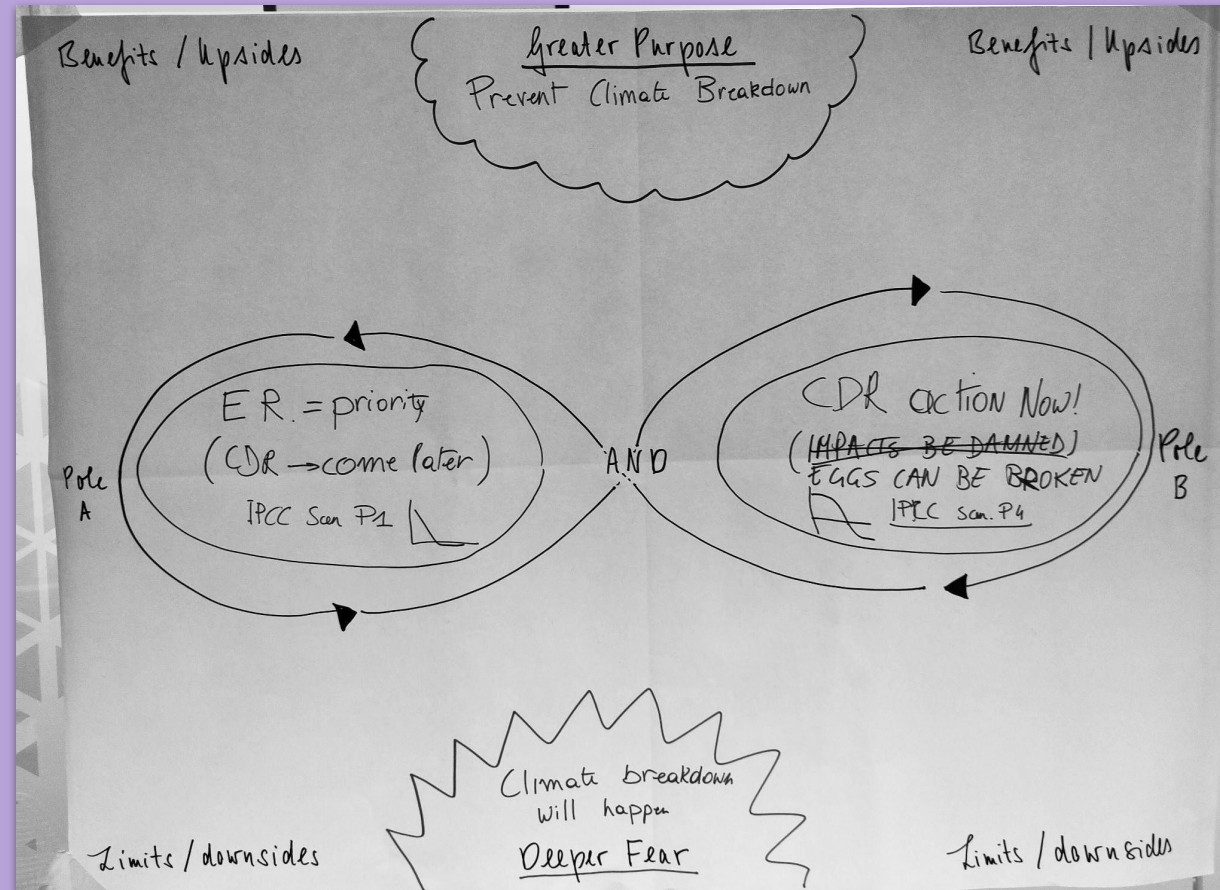 Benefits / Upsides
Greater Purpose
Prevent Climate Breakdown
Benefits / Upsides
Pole
A
E R. = priority
(CDR → come later)
IPCC Scen P1
AND
CDR action Now!
(IMPACTS BE DAMNED)
EGGS CAN BE BROKEN
IPCC scen. P4
Pole
B
Climate breakdown
will happen
Deeper Fear
Limits / downsides
Limits / downsides